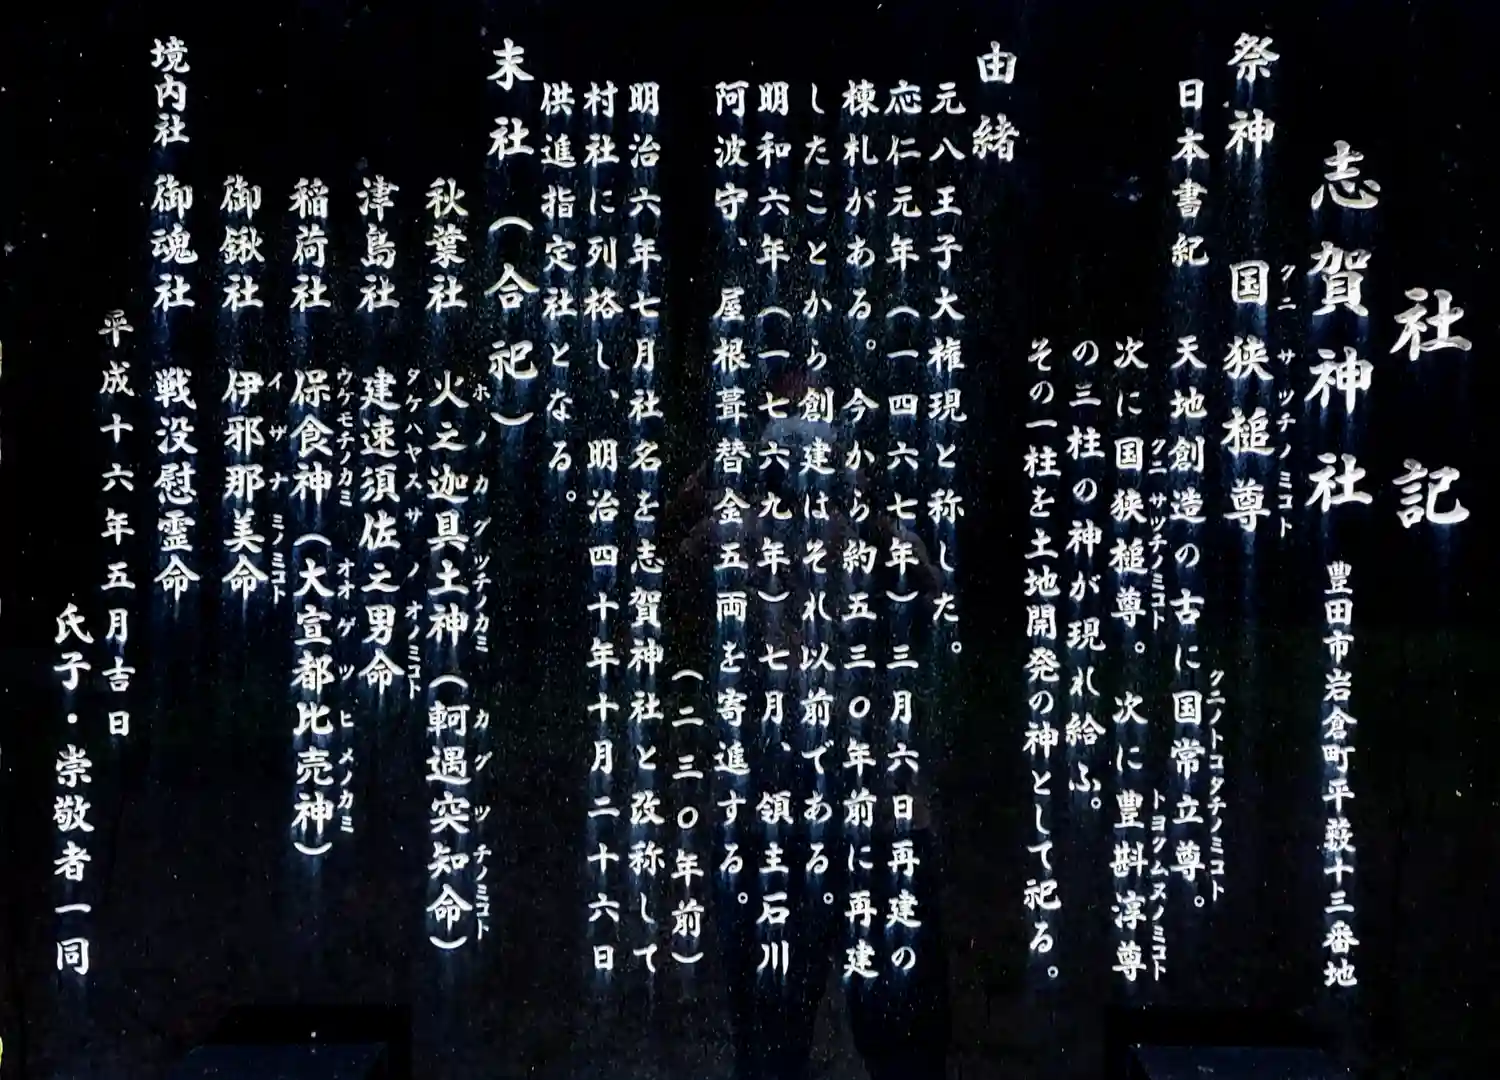 社記
志賀神社 豊田市岩倉町平藪十三番地
祭神 国狭槌尊
クニ サッチノミコト
日本書紀 天地創造の古に国常立尊。
クニノトコタチノミコト
次に国狭槌尊。次に豊斟渟尊
クニサッチノミコト トヨクムヌノミコト
の三柱の神が現れ給ふ。
その一柱を土地開発の神として祀る。
由緒
元八王子大権現と称した。
応仁元年(一四六七年)三月六日再建の
棟札がある。今から約五三〇年前に再建
したことから創建はそれ以前である。
明和六年(一七六九年)七月、領主石川
阿波守、屋根葺替金五両を寄進する。
(二三〇年前)
明治六年七月社名を志賀神社と改称して
村社に列格し、明治四十年十月二十六日
供進指定社となる。
末社(合祀)
秋葉社 火之迦具土神(軻遇突知命)
ホノカグツチノカミ カグツチノミコト
津島社 建速須佐之男命
タケハヤスサノオノミコト
稲荷社 保食神(大宣都比売神)
ウケモチノカミ オオゲツヒメノカミ
御鍬社 伊邪那美命
イザナミノミコト
境内社 御魂社 戦没慰霊命
平成十六年五月吉日
氏子・崇敬者一同